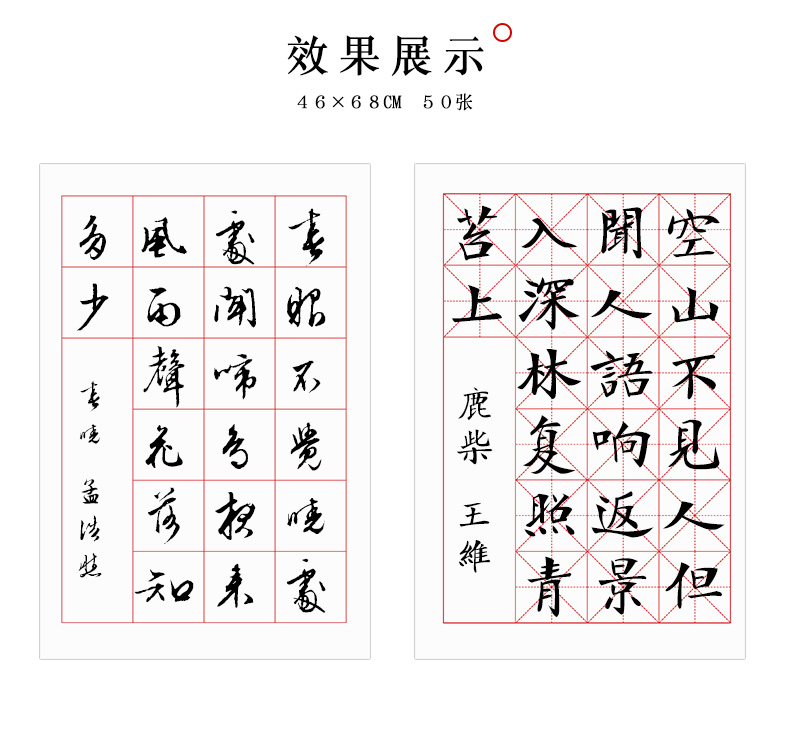 效果展示
46×68CM 50张
春眠不覺曉處
處聞啼鳥夜来
風雨聲花落知
多少
春曉 孟浩然
空山不見人但
聞人語响返景
入深林复照青
苔上
鹿柴 王維